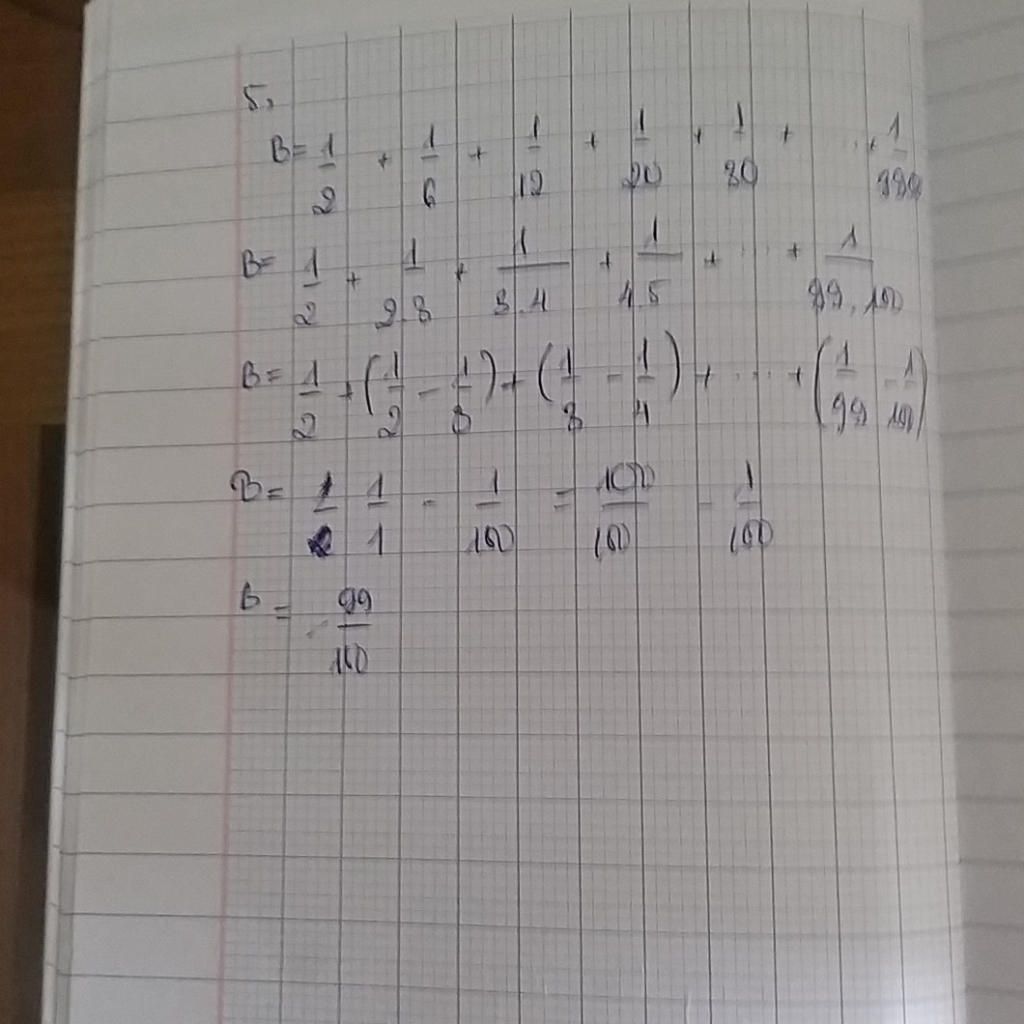 5,
B = 1/2 + 1/6 + 1/12 + 1/20 + 1/30 + ... + 1/9900
B = 1/2 + 1/2.3 + 1/3.4 + 1/4.5 + ... + 1/99.100
B = 1/2 + (1/2 - 1/3) + (1/3 - 1/4) + ... + (1/99 - 1/100)
B = 1/1 - 1/100 = 100/100 - 1/100
B = 99/100